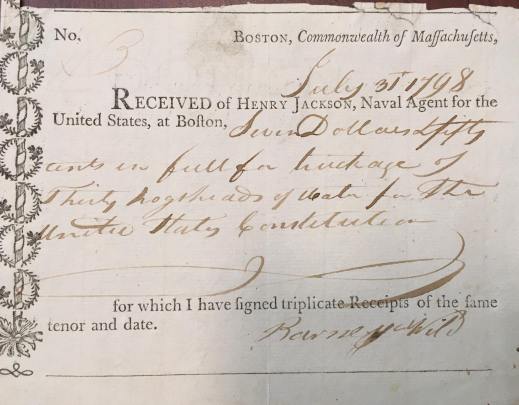 No. 3 BOSTON, Commonwealth of Maſſachuſetts,
July 31 1798
RECEIVED OF HENRY JACKSON, Naval Agent for the
United States, at Boſton, Seven Dollars & fifty
cents in full for truckage of
Thirty hogsheads of water for The
United States Constitution
for which I have ſigned triplicate Receipts of the ſame
tenor and date.
Wild